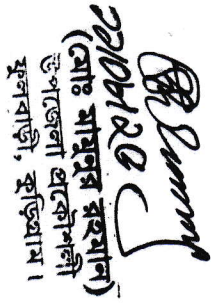 ২১/০৮/২৫
(মোঃ মামুনুর রহমান)
উপজেলা প্রকৌশলী
ফুলবাড়ী, কুড়িগ্রাম।